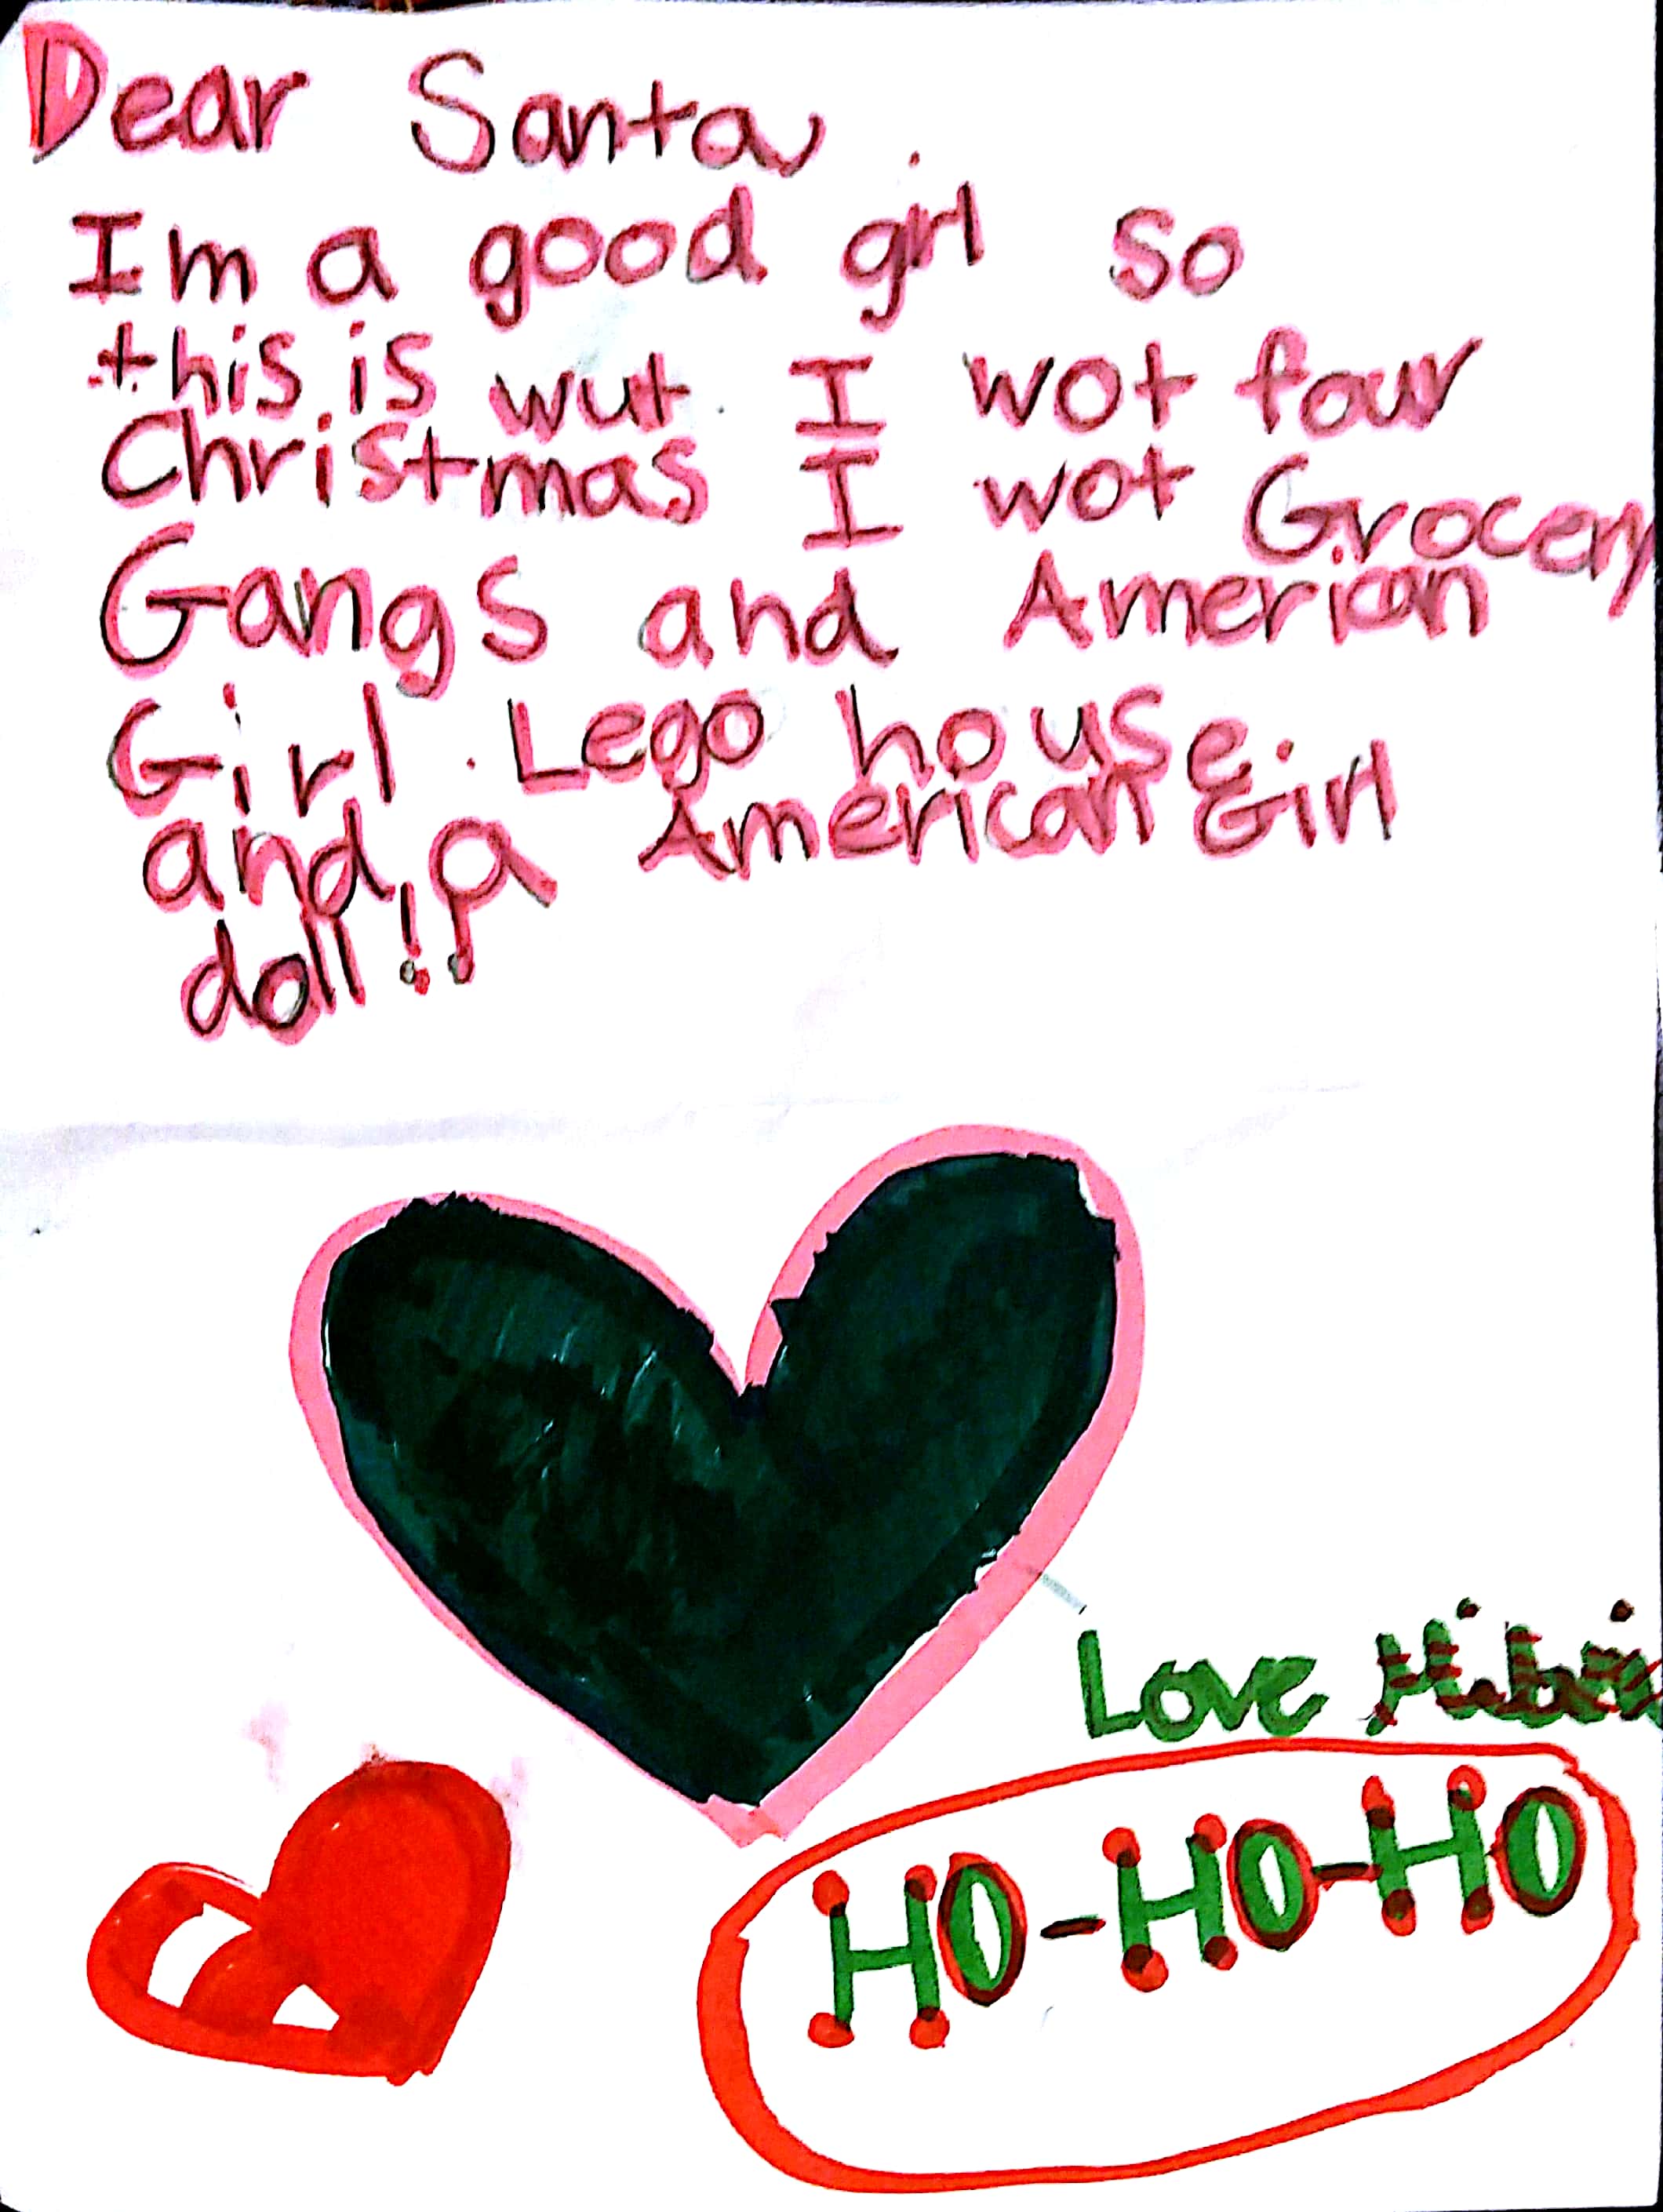 Dear Santa,
Im a good girl so
this is wut I wot four
Christmas I wot Grocery
Gangs and American
Girl. Lego house.
and a American Girl
doll!!
Love
HO-HO-HO